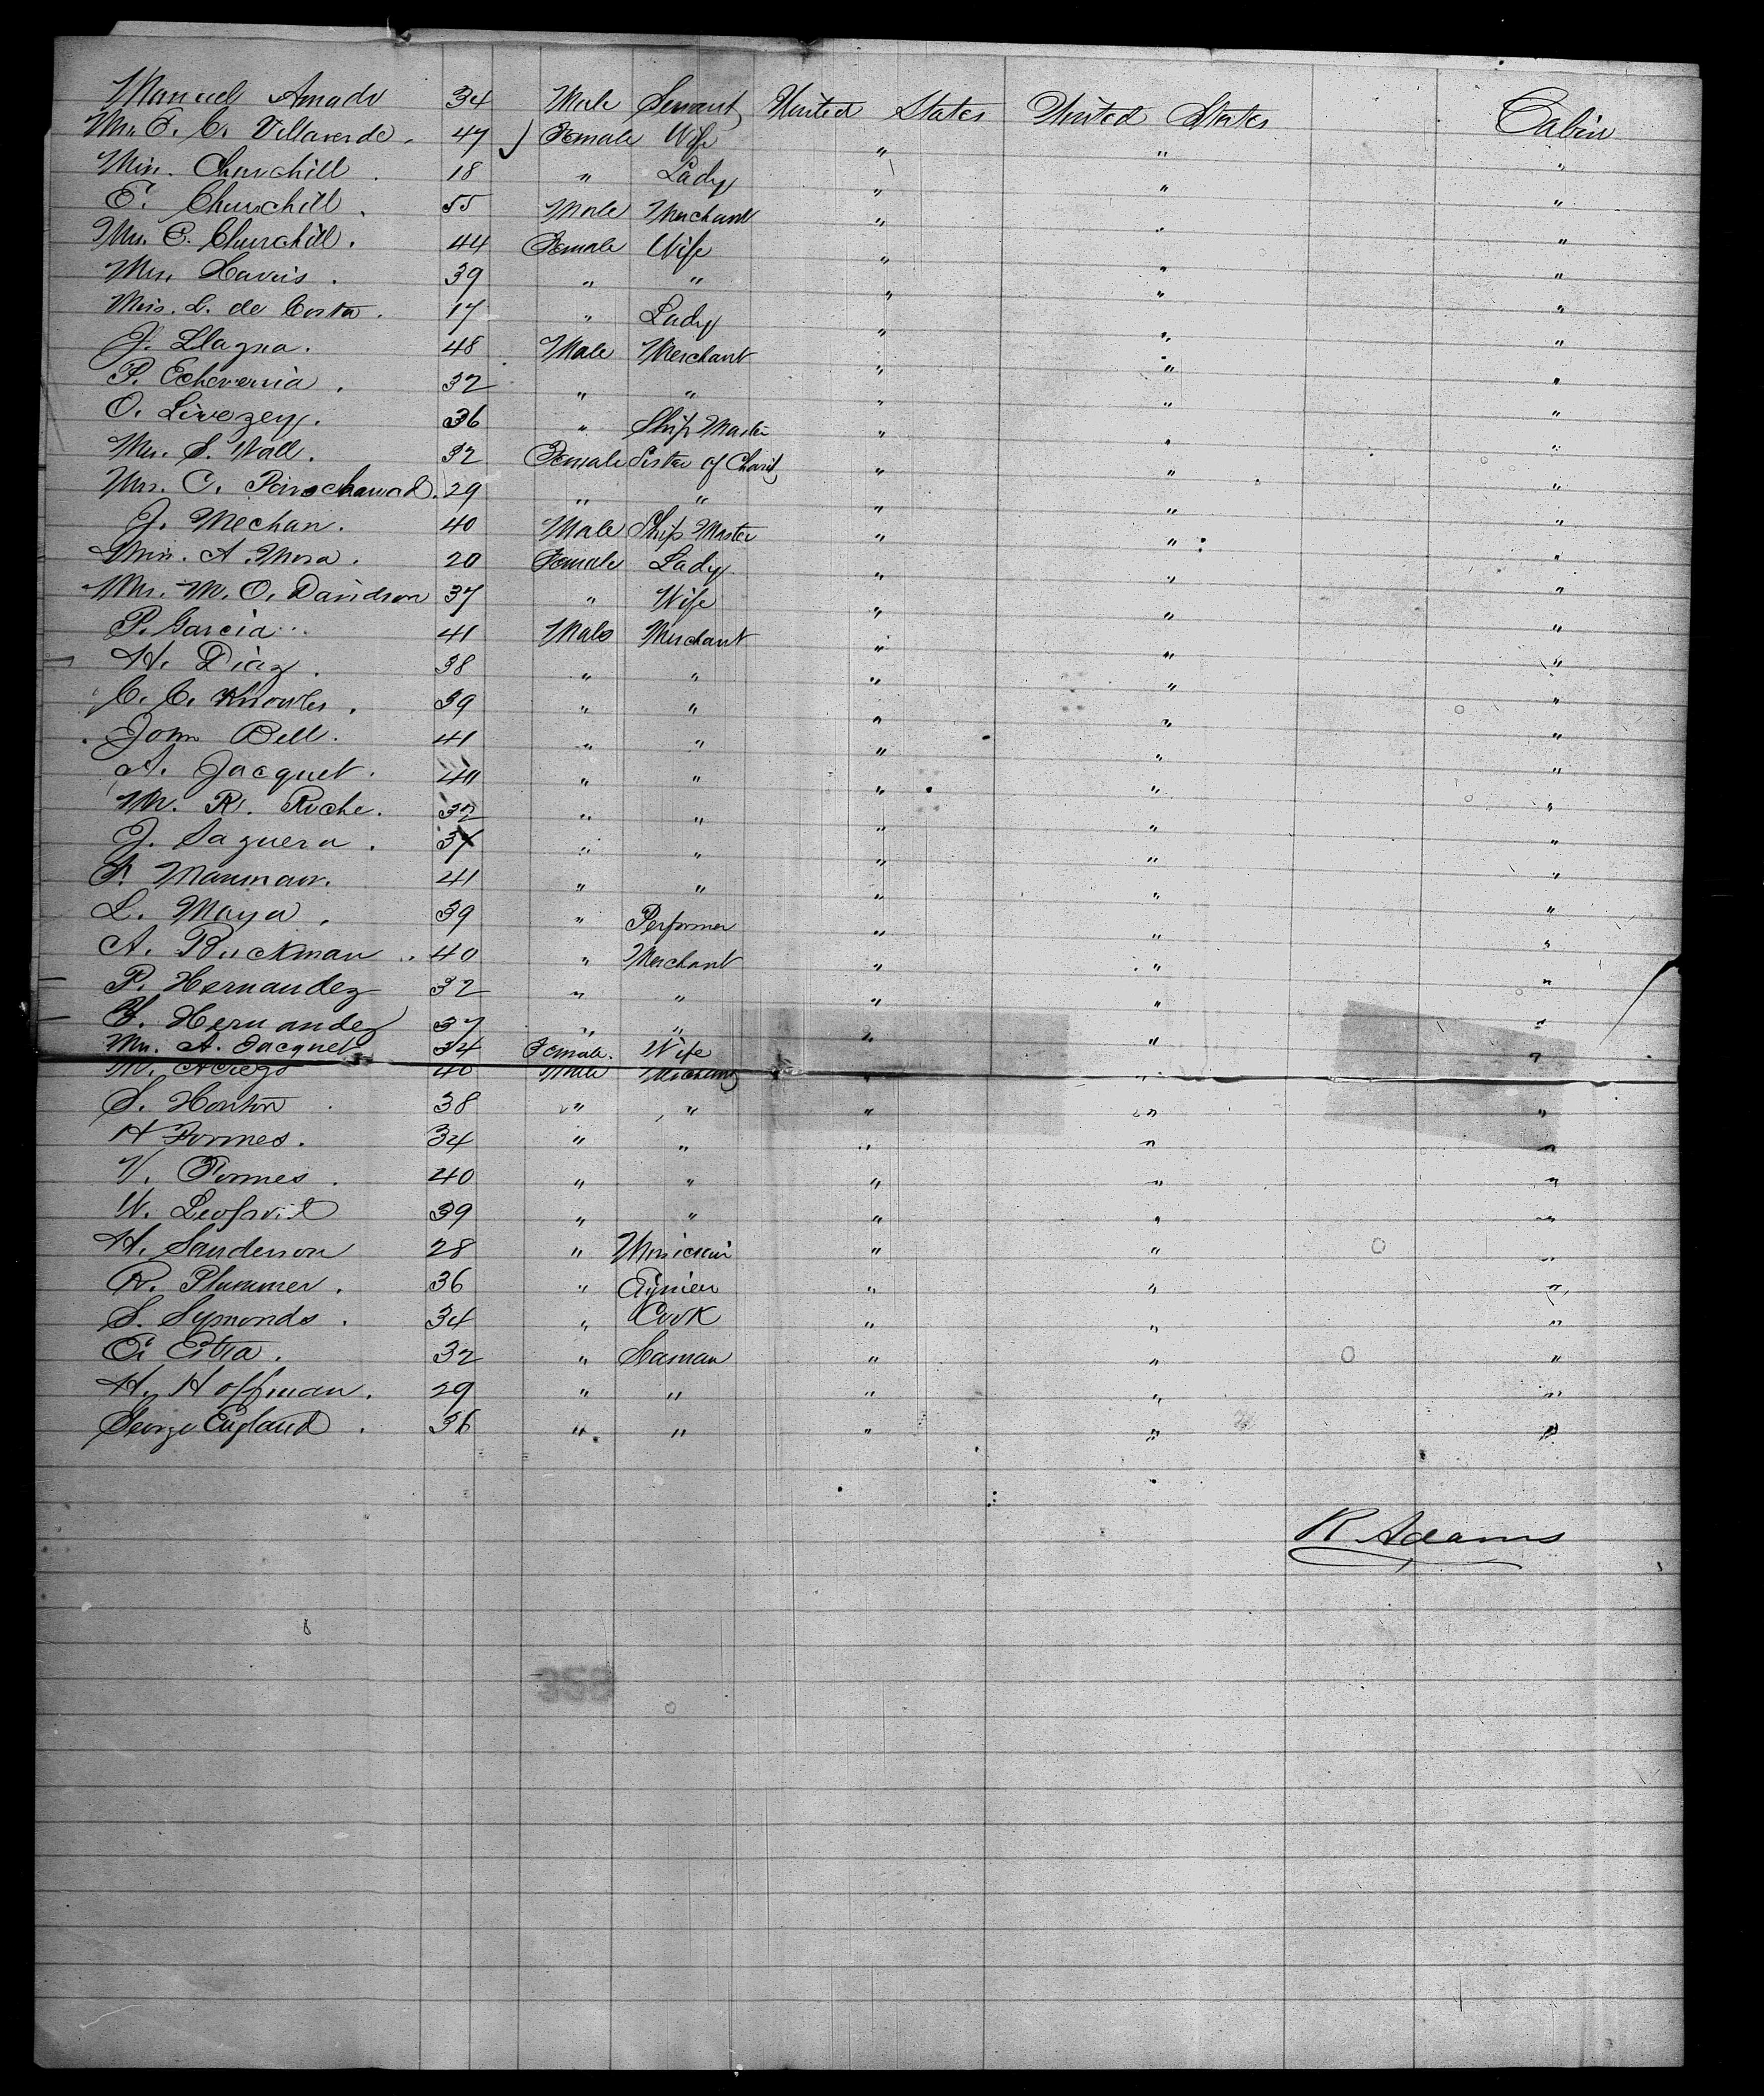 Manuel Amado 34 Male Servant United States United States Cabin
Mrs. E. C. Villaverde. 47 Female Wife " " "
Miss. Churchill. 18 " Lady " " "
E. Churchill. 55 Male Merchant " " "
Mrs. E. Churchill. 44 Female Wife " " "
Mrs. 39 " " " " "
Miss. L. de Costa. 17 " Lady " " "
J. Llagna. 48 Male Merchant " " "
P. Echeverria. 32 " " " " "
O. Livezey. 36 " Ship Master " " "
Mrs. S. Wall. 32 Female Sister of Charity " " "
Mrs. C. 29 " " " " "
J. Mechan. 40 Male Ship Master " " "
Miss. A. Mora. 20 Female Lady " " "
Mrs. M. O. Davidson 37 " Wife " " "
P. Garcia. 41 Male Merchant " " "
H. Diaz. 38 " " " " "
C. C. Knowles. 39 " " " " "
John Bell. 41 " " " " "
A. Jacquet. " " " " "
M. R. Ruche. 32 " " " " "
J. Saguera. " " " " "
41 " " " " "
L. Maya. 39 " Performer " " "
A. Ruckman. 40 " Merchant " " "
P. Hernandez 32 " " " " "
Y. Hernandez 37 " " " " "
Mrs. A. Jacquet 34 Female. Wife " " "
M. 40 Male " " "
S. Horton. 38 " " " " "
H Formes. 34 " " " " "
V. 40 " " " " "
W. 39 " " " " "
H. Sanderson 28 " Musician " " "
R. Plummer. 36 " " " "
S. Symonds. 34 " Cook " " "
32 " Seaman " " "
Hy Hoffman. 29 " " " " "
George England. 36 " " " " "
R. Adams